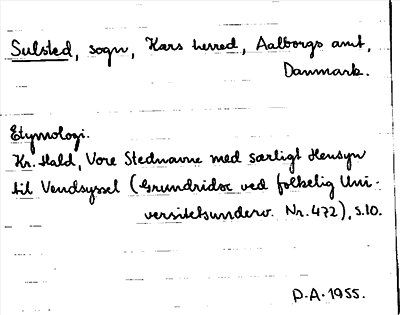 Sulsted, sogn, Kærs herred, Aalborgs amt,
Danmark.
Etymologi.
Kr. Hald, Vore Stednavne med særligt Hensyn
til Vendsyssel (Grundridse ved folkelig Uni-
versitetsunderv. Nr. 472), s. 10.
P.A. 1955.